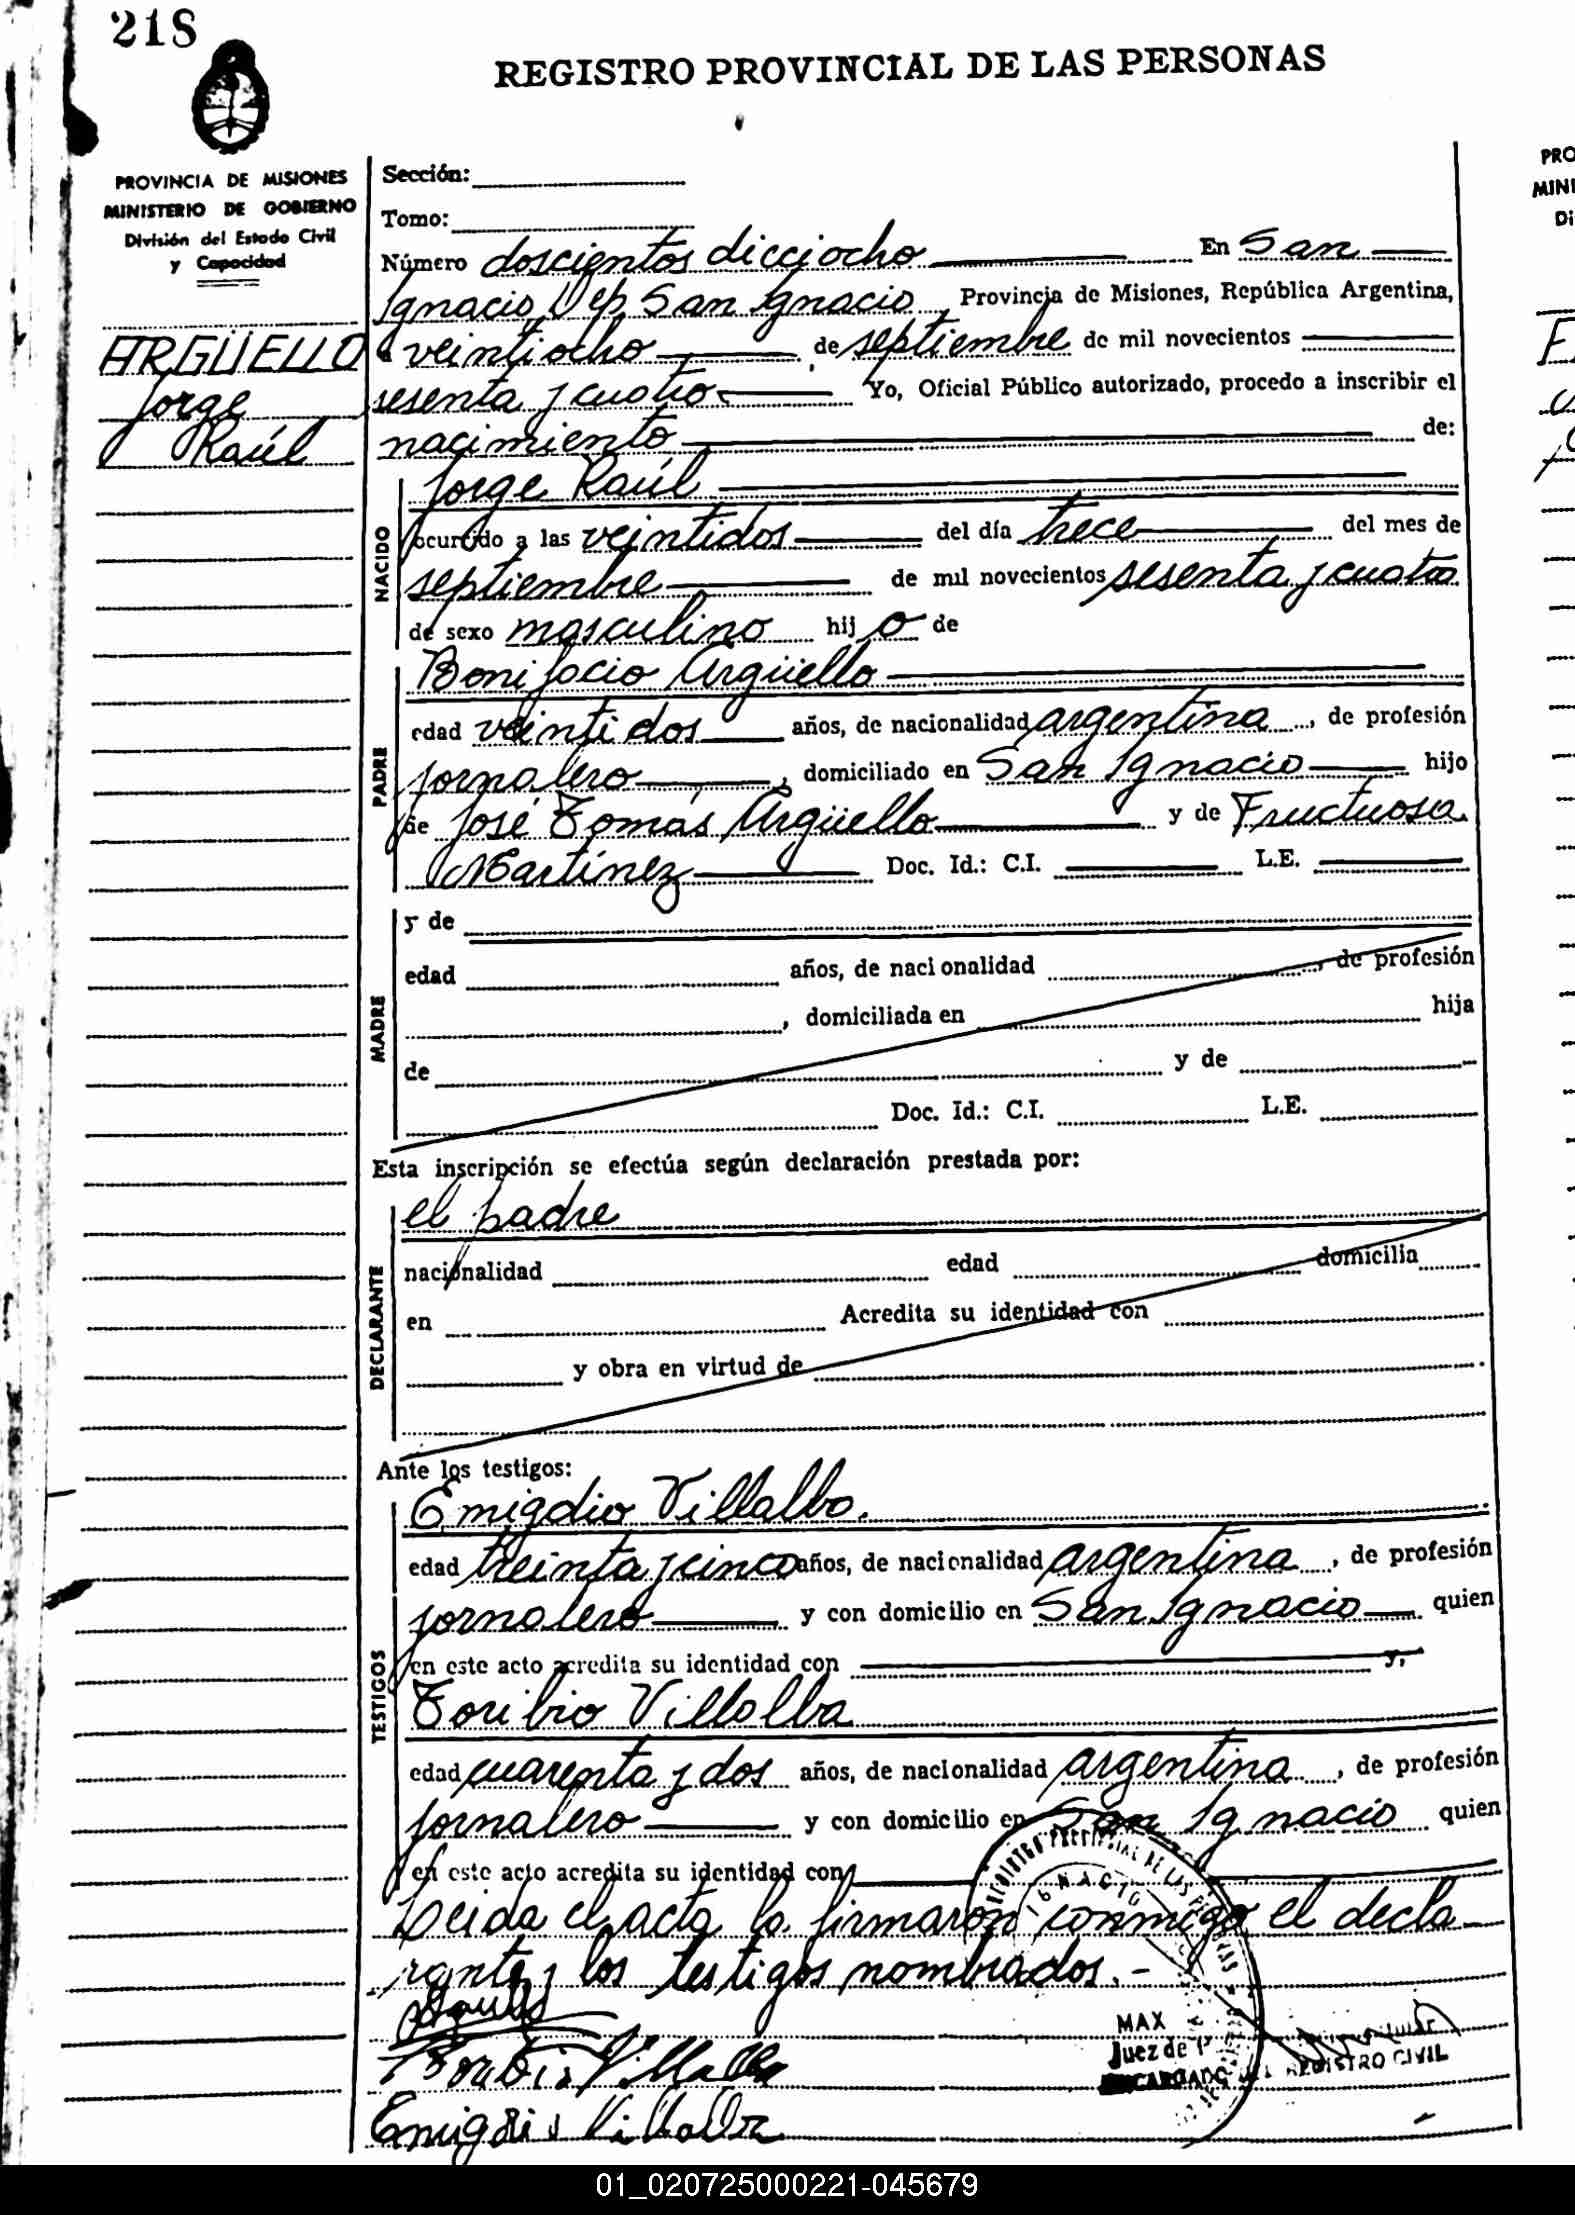 218
REGISTRO PROVINCIAL DE LAS PERSONAS
PROVINCIA DE MISIONES
MINISTERIO DE GOBIERNO
División del Estado Civil
y Capacidad
ARGÜELLO
Jorge
Raúl
Sección:
Tomo:
Número doscientos dicciocho En San
Ignacio, Dep. San Ignacio Provincia de Misiones, República Argentina,
a veintiocho de septiembre de mil novecientos
sesenta y cuatro Yo, Oficial Público autorizado, procedo a inscribir el
nacimiento de:
NACIDO
Jorge Raúl
ocurrido a las veintidos del día trece del mes de
septiembre de mil novecientos sesenta y cuatro
de sexo masculino hijo de
PADRE
Bonifacio Argüello
edad veintidos años, de nacionalidad argentina, de profesión
jornalero, domiciliado en San Ignacio hijo
de José Tomás Argüello y de Fructuosa
Martínez Doc. Id.: C.I. L.E.
MADRE
y de
edad años, de nacionalidad , de profesión
, domiciliada en hija
de y de
Doc. Id.: C.I. L.E.
Esta inscripción se efectúa según declaración prestada por:
DECLARANTE
el padre
nacionalidad edad domicilia
en Acredita su identidad con
y obra en virtud de
Ante los testigos:
TESTIGOS
Emigdio Villalba.
edad treinta y cinco años, de nacionalidad argentina, de profesión
jornalero y con domicilio en San Ignacio quien
en este acto acredita su identidad con y,
Toribio Villalba
edad cuarenta y dos años, de nacionalidad argentina, de profesión
jornalero y con domicilio en San Ignacio quien
en este acto acredita su identidad con
Leida el acta la firmaron conmigo el decla
rante y los testigos nombrados.-
Toribio Villalba
Emigdio Villalba
MAX
Juez de P
ENCARGADO DEL REGISTRO CIVIL
PRO
MINI
Di
01_020725000221-045679